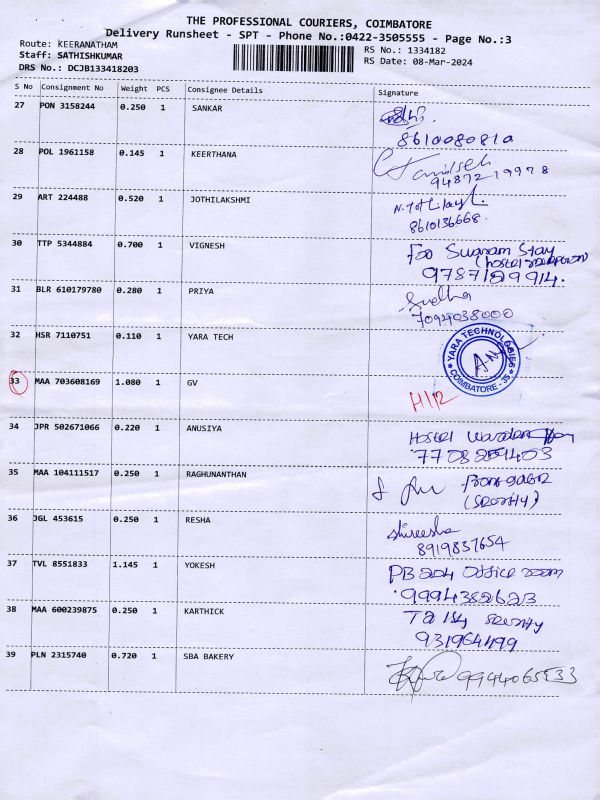 THE PROFESSIONAL COURIERS, COIMBATORE
Delivery Runsheet - SPT - Phone No.:0422-3505555 - Page No.:3
Route: KEERANATHAM
RS No.: 1334182
Staff: SATHISHKUMAR
RS Date: 08-Mar-2024
DRS No.: DCJB133418203
S No Consignment No Weight PCS Consignee Details Signature
27 PON 3158244 0.250 1 SANKAR
8610080810
28 POL 1961158 0.145 1 KEERTHANA
94872 19978
29 ART 224488 0.520 1 JOTHILAKSHMI
8610136668.
30 TTP 5344884 0.700 1 VIGNESH
Swaram Stay
9787129914.
31 BLR 610179780 0.280 1 PRIYA Sudha
7094038000
32 HSR 7110751 0.110 1 YARA TECH
YARA TECHNOLOGIES
COIMBATORE - 35
33 MAA 703608169 1.080 1 GV
H112
34 JPR 502671066 0.220 1 ANUSIYA Hostel Warden
7708259403
35 MAA 104111517 0.250 1 RAGHUNANTHAN
36 JGL 453615 0.250 1 RESHA Shireesha
8919837654
37 TVL 8551833 1.145 1 YOKESH PB 204 Office room
9994382623
38 MAA 600239875 0.250 1 KARTHICK
931964499
39 PLN 2315740 0.720 1 SBA BAKERY 9944065533